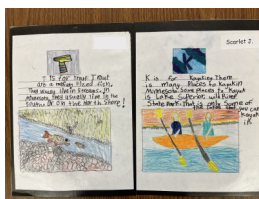 T
T is for Trout. Trout
are a medium sized fish.
They usually live in streams. In
Minnesota they usually live in the
or on the North Shore!
Scarlet J.
K
K is for Kayaking. There
is many Places to Kayak in
Minnesota. Some Places to Kayak
is Lake Superior, wild River
State Park, that is only some of
you can
Kayak
in.